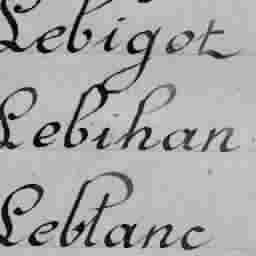 Lebigot
Lebihan
Leblanc